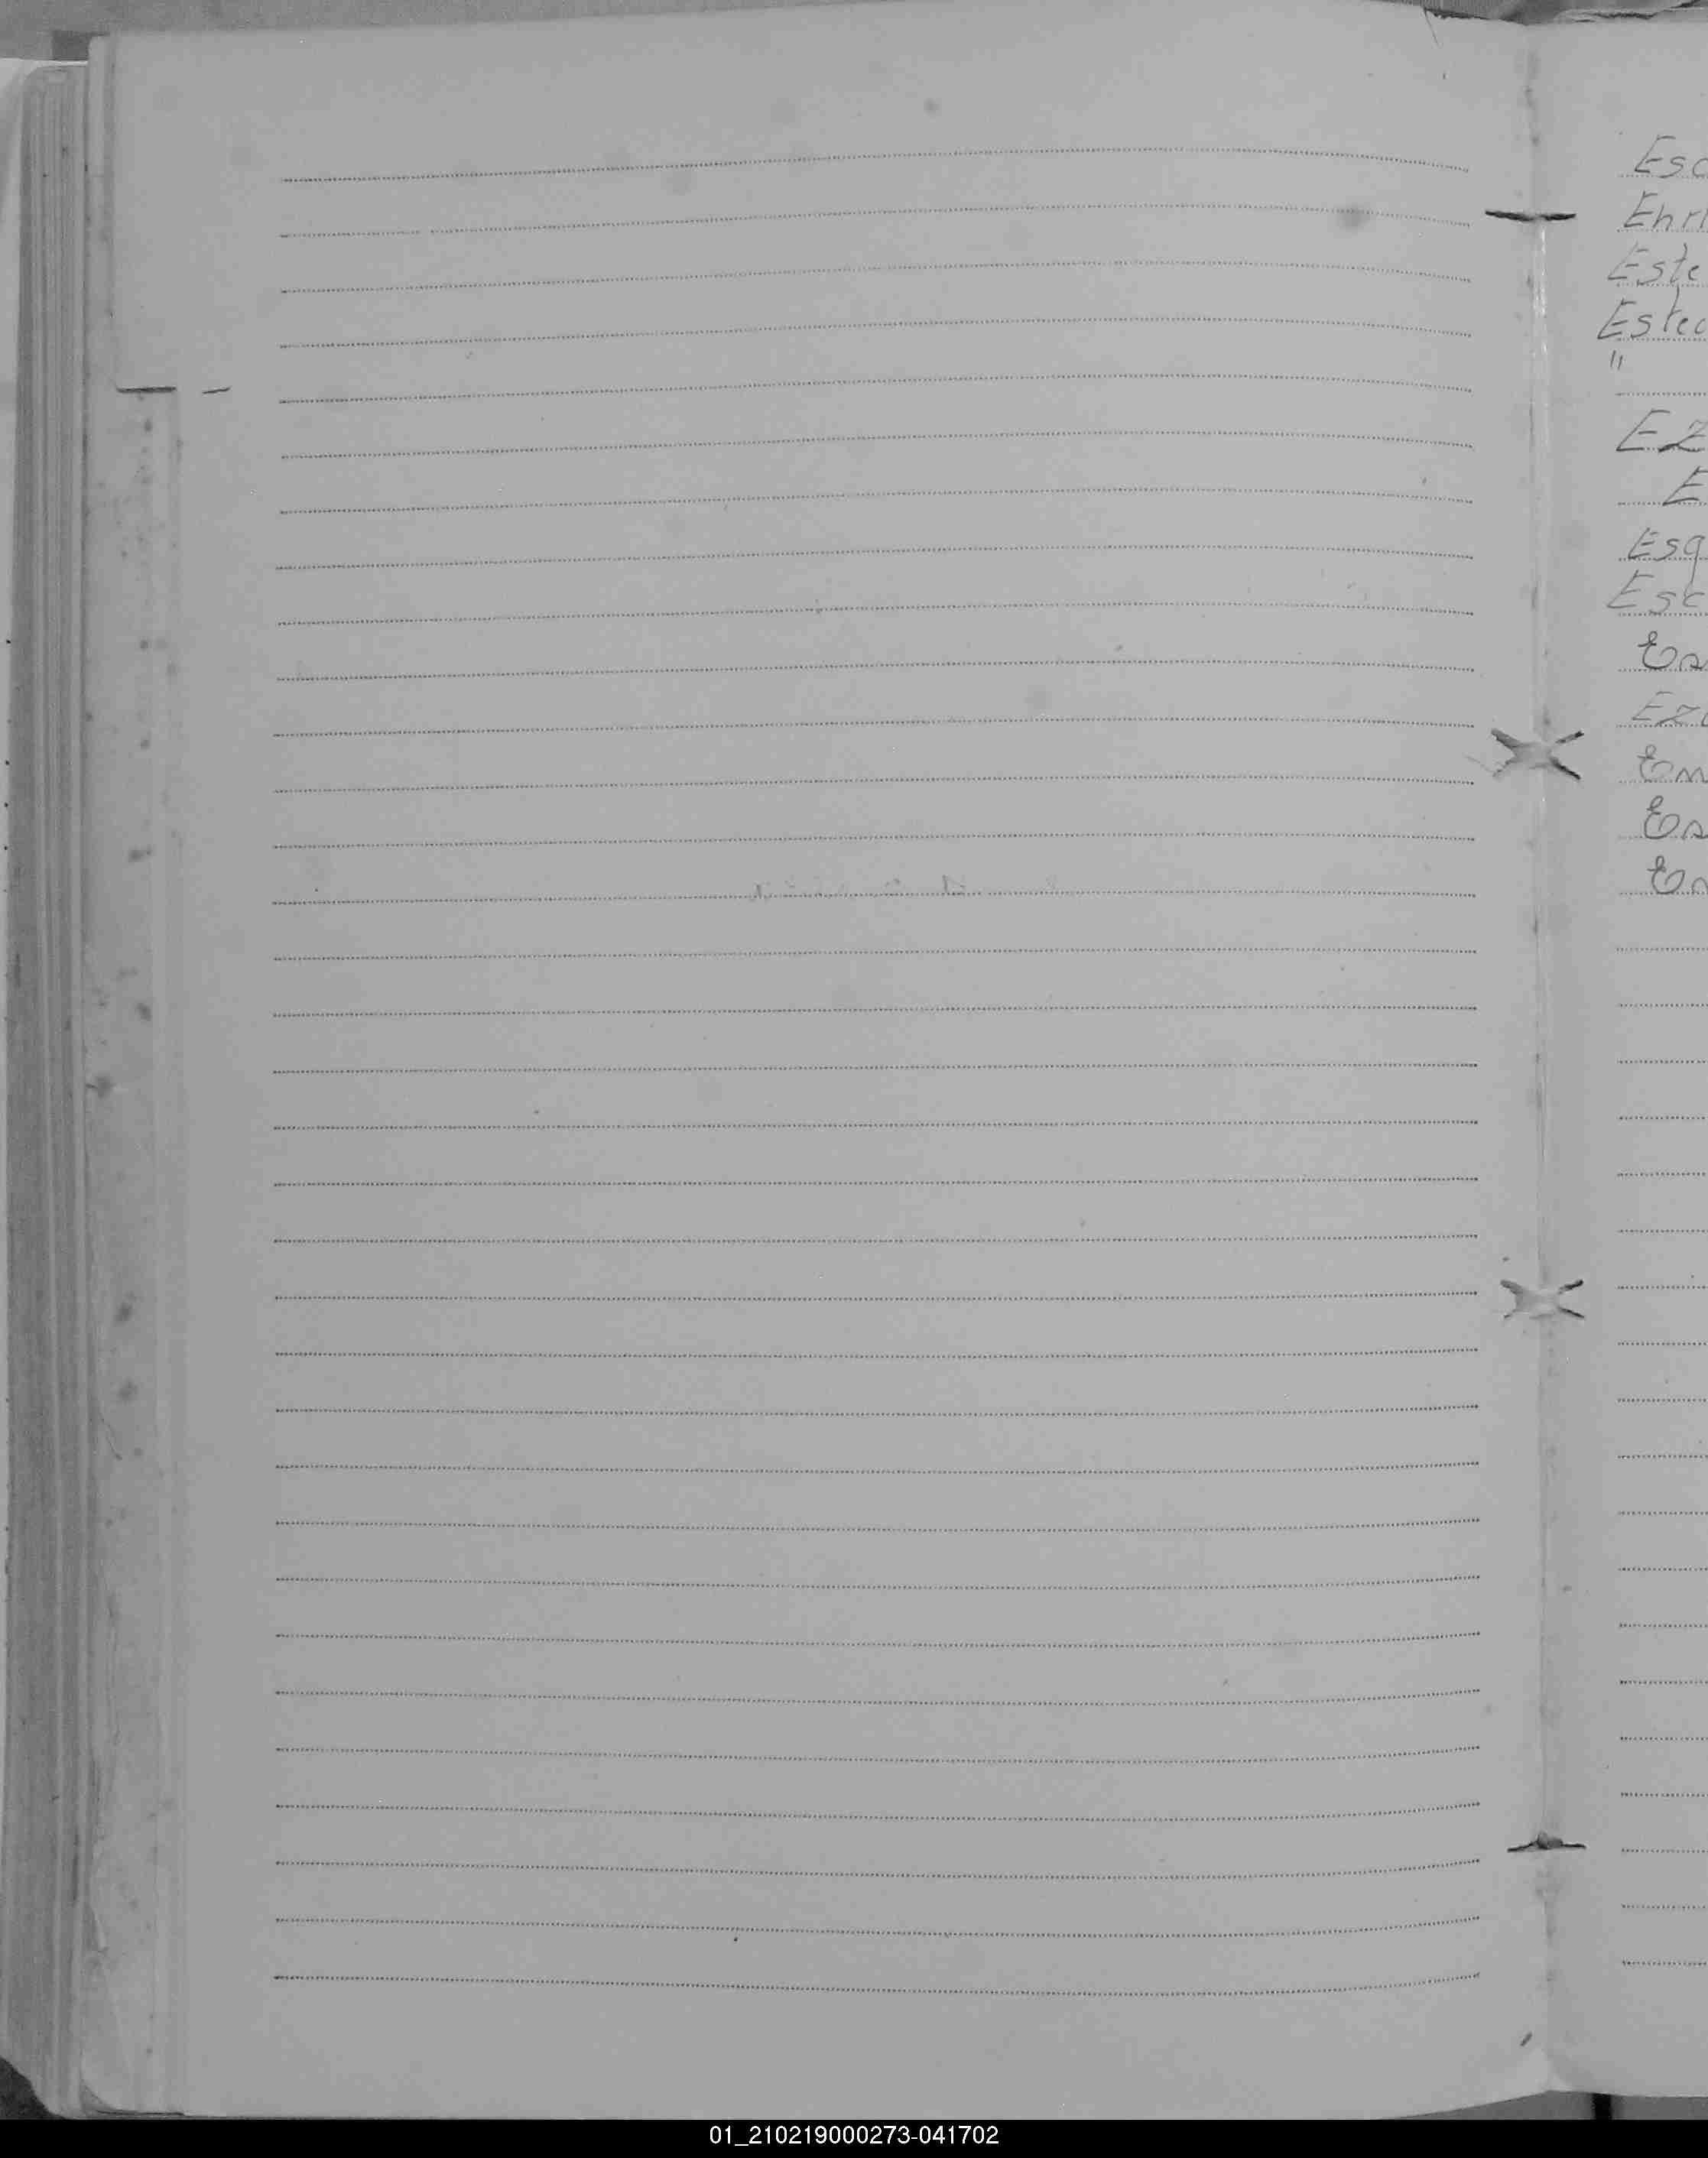 Esc
Ehri
Este
Estec
"
EZ
E
Esq
Esc
Es
Ez
Em
Es
En
01_210219000273-041702